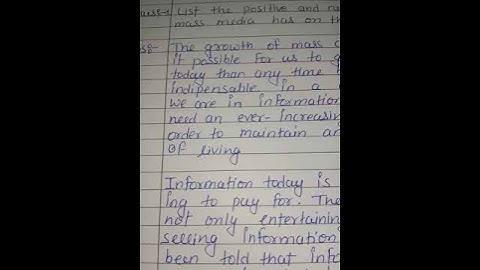 List the positive and
mass media has on th
The growth of mass
it possible for us to g
today than any time
indispensable. In a
we are in information
need an ever-increasin
order to maintain an
of living
Information today is
ing to pay for. The
not only entertainin
selling information
been told that info